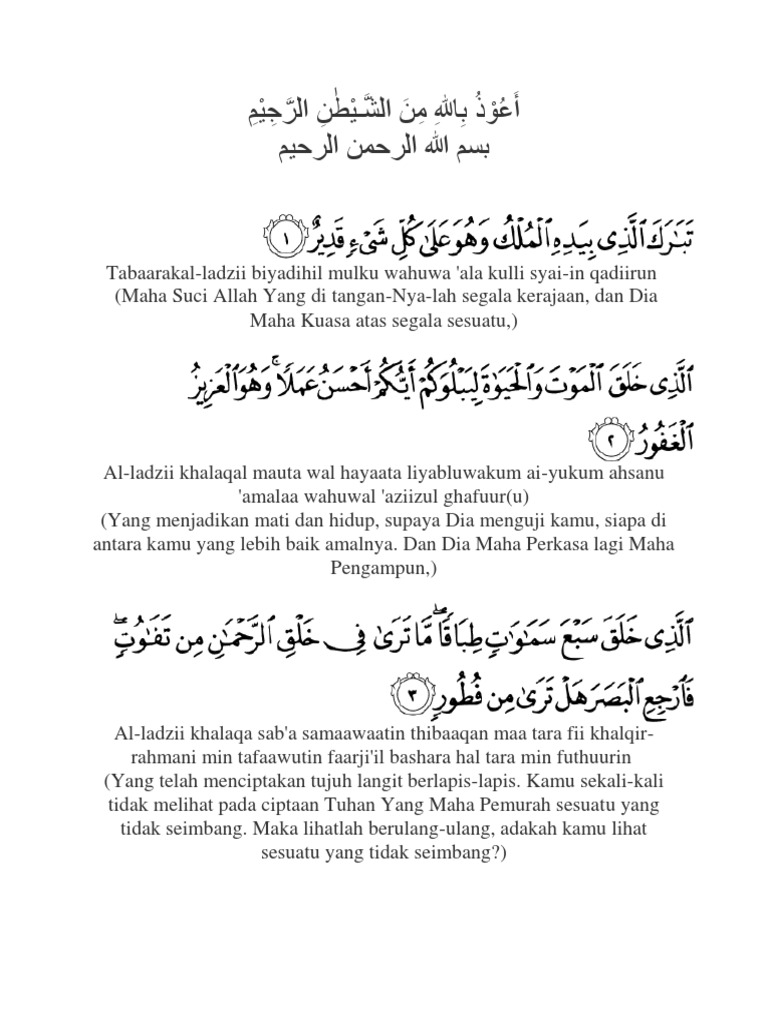 أَعُوْذُ بِاللهِ مِنَ الشَّيْطٰنِ الرَّجِيْمِ
بسم الله الرحمن الرحيم
تَبَـٰرَكَ ٱلَّذِى بِيَدِهِ ٱلْمُلْكُ وَهُوَ عَلَىٰ كُلِّ شَىْءٍ قَدِيرٌ ١
Tabaarakal-ladzii biyadihil mulku wahuwa 'ala kulli syai-in qadiirun
(Maha Suci Allah Yang di tangan-Nya-lah segala kerajaan, dan Dia
Maha Kuasa atas segala sesuatu,)
ٱلَّذِى خَلَقَ ٱلْمَوْتَ وَٱلْحَيَوٰةَ لِيَبْلُوَكُمْ أَيُّكُمْ أَحْسَنُ عَمَلًا ۚ وَهُوَ ٱلْعَزِيزُ
ٱلْغَفُورُ ٢
Al-ladzii khalaqal mauta wal hayaata liyabluwakum ai-yukum ahsanu
'amalaa wahuwal 'aziizul ghafuur(u)
(Yang menjadikan mati dan hidup, supaya Dia menguji kamu, siapa di
antara kamu yang lebih baik amalnya. Dan Dia Maha Perkasa lagi Maha
Pengampun,)
ٱلَّذِى خَلَقَ سَبْعَ سَمَـٰوَٰتٍ طِبَاقًا ۖ مَّا تَرَىٰ فِى خَلْقِ ٱلرَّحْمَـٰنِ مِن تَفَـٰوُتٍ ۖ
فَٱرْجِعِ ٱلْبَصَرَ هَلْ تَرَىٰ مِن فُطُورٍ ٣
Al-ladzii khalaqa sab'a samaawaatin thibaaqan maa tara fii khalqir-
rahmani min tafaawutin faarji'il bashara hal tara min futhuurin
(Yang telah menciptakan tujuh langit berlapis-lapis. Kamu sekali-kali
tidak melihat pada ciptaan Tuhan Yang Maha Pemurah sesuatu yang
tidak seimbang. Maka lihatlah berulang-ulang, adakah kamu lihat
sesuatu yang tidak seimbang?)